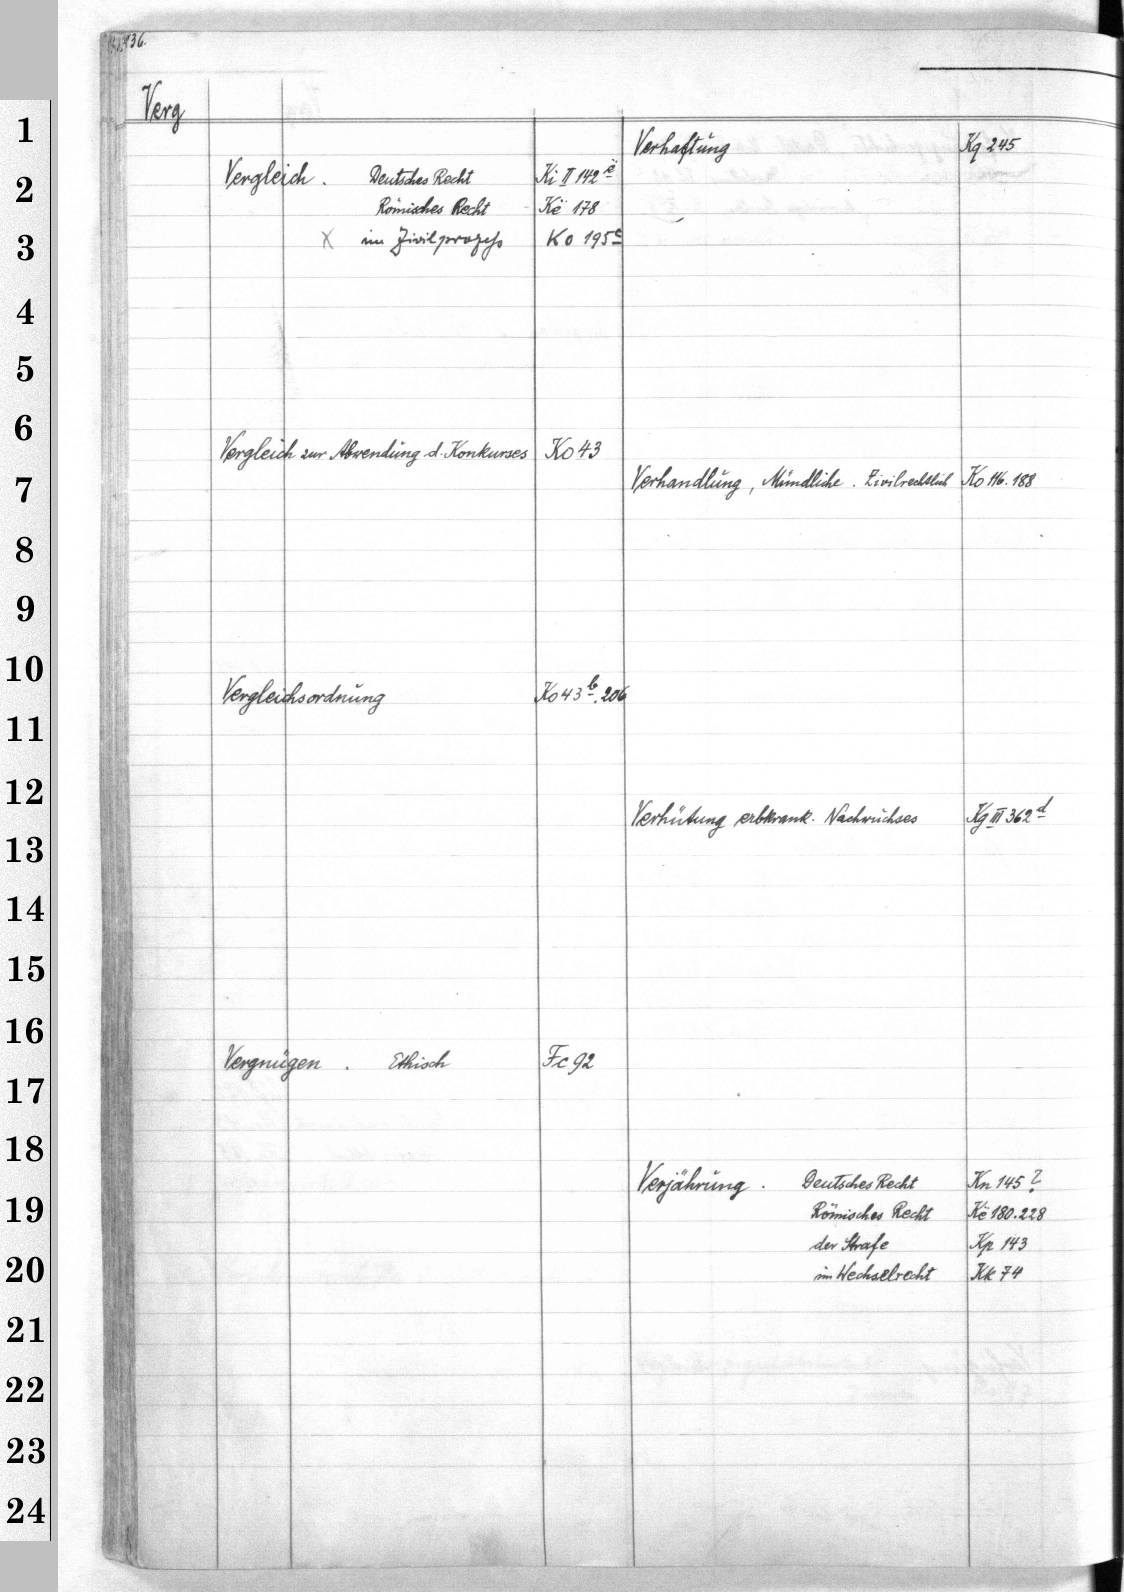 136.
Verg
1
2
3
4
5
6
7
8
9
10
11
12
13
14
15
16
17
18
19
20
21
22
23
24
Vergleich . Deutsches Recht Ki II 142 e
Römisches Recht Kë 178
X im Zivilprozeß Ko 195 c
Vergleich zur Abwendung d. Konkurses Ko 43
Vergleichsordnung Ko 43 b. 206
Vergnügen . Ethisch Fc 92
Verhaftung Kq 245
Verhandlung, Mündliche . Zivilrechtlich Ko 116. 188
Verhütung erbkrank. Nachwuchses Kg III 362 d
Verjährung . Deutsches Recht Kn 145 ?
Römisches Recht Kë 180. 228
der Strafe Kp 143
im Wechselrecht Kk 74